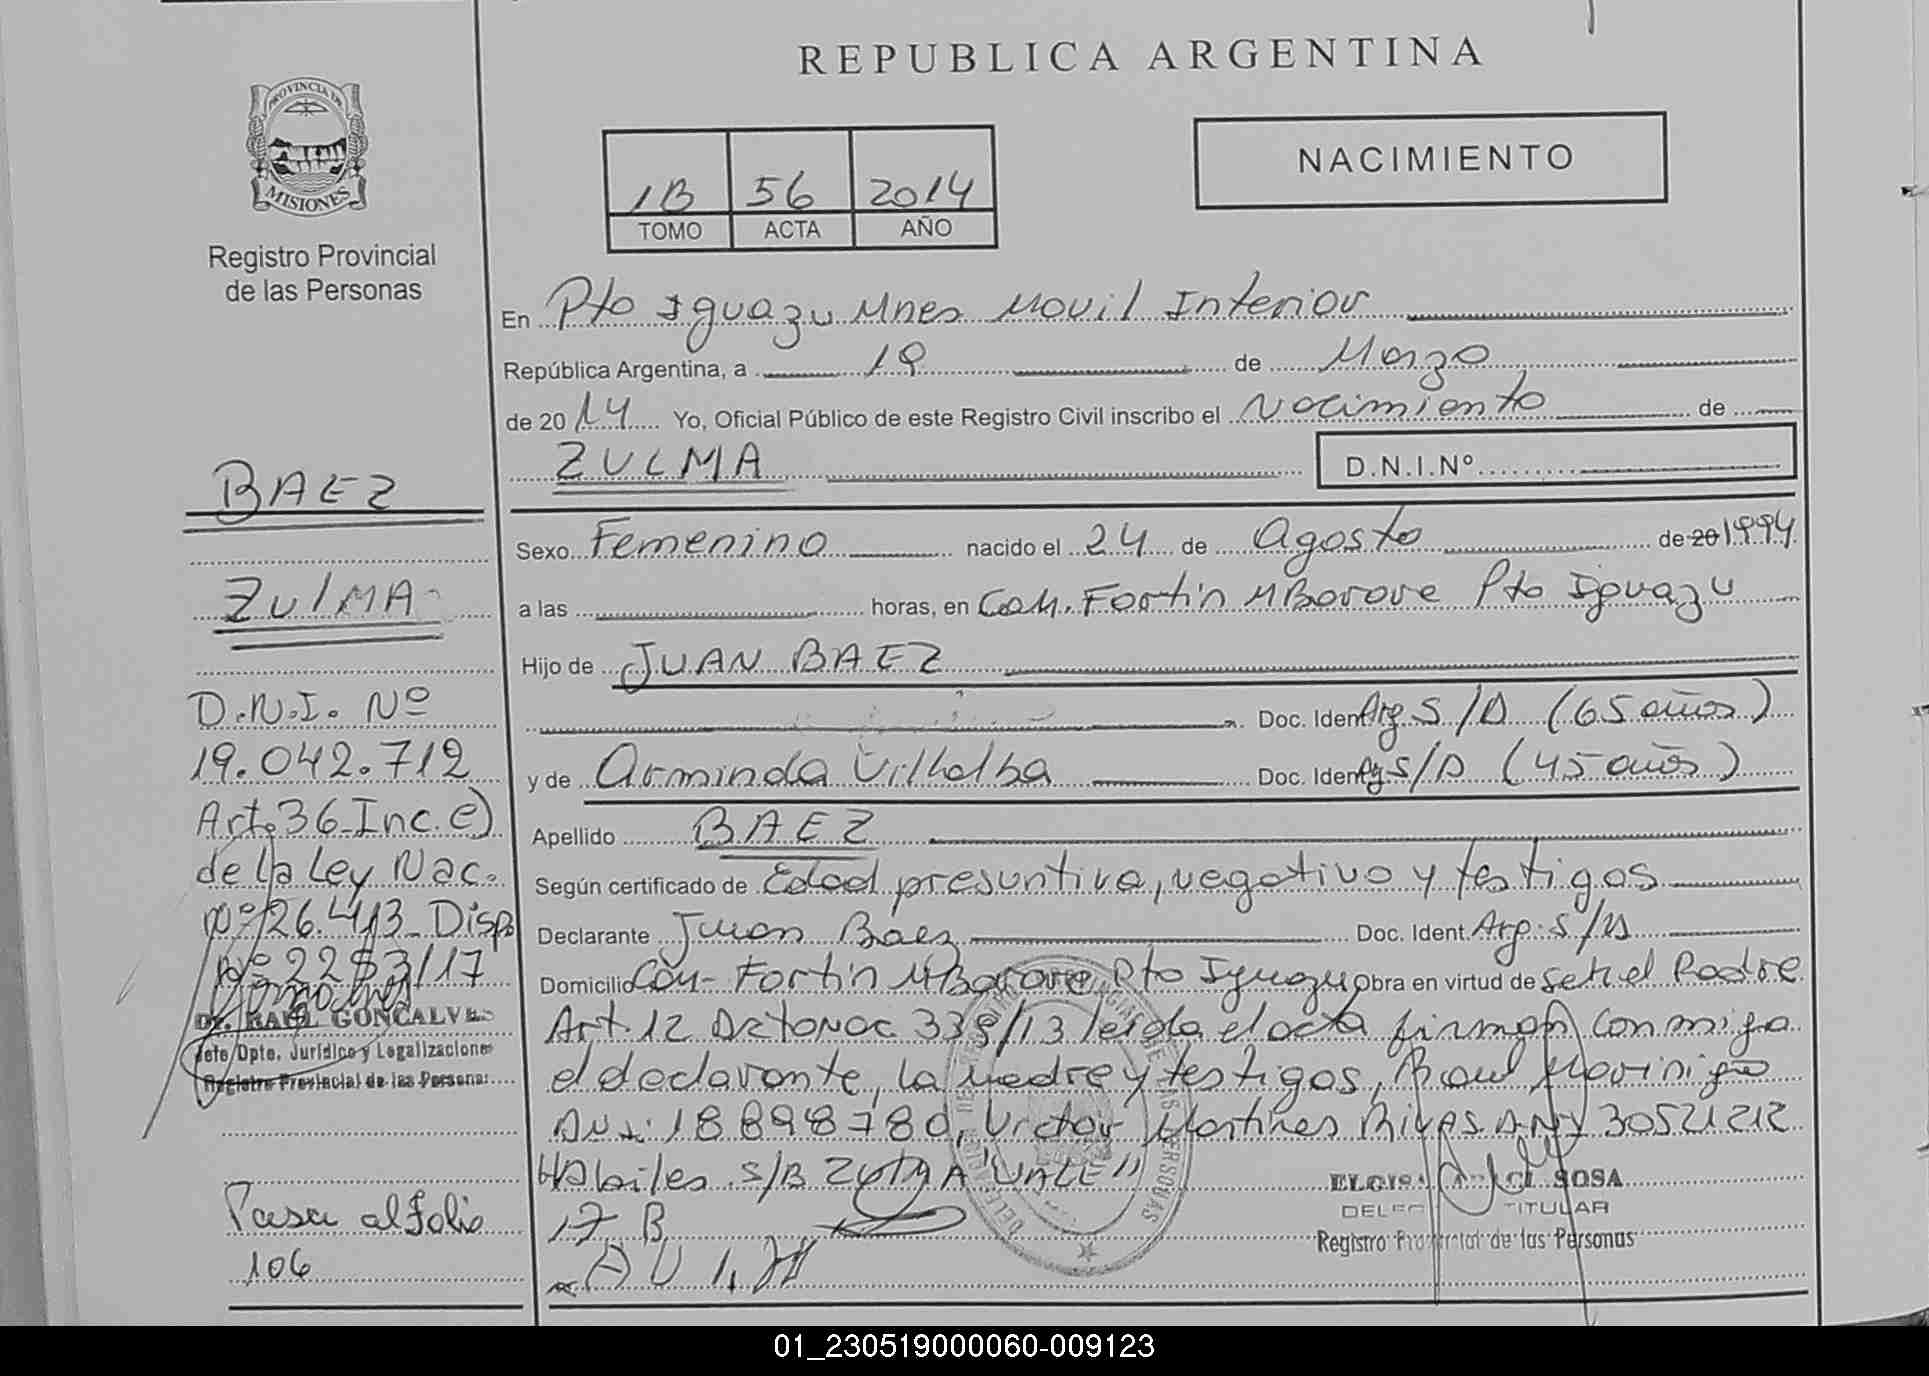 REPUBLICA ARGENTINA
PROVINCIA DE
MISIONES
Registro Provincial
de las Personas
NACIMIENTO
1B 56 2014
TOMO ACTA AÑO
En Pto Iguazu Mnes Movil Interior
República Argentina, a 19 de Marzo
de 2014 Yo, Oficial Público de este Registro Civil inscribo el Nacimiento de
ZULMA D.N.I.Nº
Sexo Femenino nacido el 24 de Agosto de 20 1994
a las horas, en Com. Fortin MBorore Pto Iguazu
Hijo de JUAN BAEZ
Doc. Ident Arg S/D (65 años)
y de Arminda Vilhalba Doc. Ident Arg S/D (45 años)
Apellido BAEZ
Según certificado de Edad presuntiva, negativo y testigos
Declarante Juan Baez Doc. Ident. Arg. S/D
Domicilio Com- Fortin MBorore Pto Iguazu Obra en virtud de ser el Padre
Art. 12 339/13 leida el acta firman conmigo
el declarante, la madre y testigos, Raul Morinigo
DNI: 18898780, Victor Martines Rivas DNI 30521212
Habiles S/B ZULMA "VALE"
17 B
BAEZ
ZULMA
D.N.I. Nº
19.042.712
Art. 36-Inc. e)
de la Ley Nac.
Nº 26.413- Disp
Nº 2253/17
Dr. RAUL GONCALVES
Jefe Dpto. Jurídico y Legalizaciones
Registro Provincial de las Personas
Pasa al folio
106
SOSA
TITULAR
Registro Provincial de las Personas
01_230519000060-009123